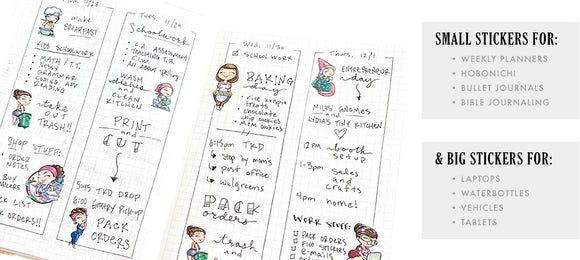 make
BREAKFAST
KIDS SCHOOLWORK
MATH / T.T.
NEWS
GRAMMAR
CODING APP
READING
take
OUT
TRASH!!
SHOP STUFF:
ORDER
NOTES
BUY
MAILERS
Tues. 11/29
Schoolwork
L.A. ASSESSMENT
TEACHING T.B.
All About Spelling
WASH
DISHES
and
CLEAN
KITCHEN
PRINT
and
CUT
5:45 TKD DROP
6:00 Grocery Pick-up
PACK
ORDERS
Wed. 11/30
SCHOOL WORK
BAKING
day
rice krispie
treats
chocolate
chip cookies
M&M cookies
6:15pm TKD
stop by mom's
post office
walgreens
PACK
orders
trash
and
Thurs. 12/1
ENTREPRENEUR
day
MILES' GNOMES
and
LYDIA'S TINY KITCHEN
12 PM booth
setup
1-3pm sales
and
crafts
4pm home!
WORK STUFF:
PACK ORDERS
FILE STICKERS
e-mails
SMALL STICKERS FOR:
• WEEKLY PLANNERS
• HOBONICHI
• BULLET JOURNALS
• BIBLE JOURNALING
& BIG STICKERS FOR:
• LAPTOPS
• WATERBOTTLES
• VEHICLES
• TABLETS